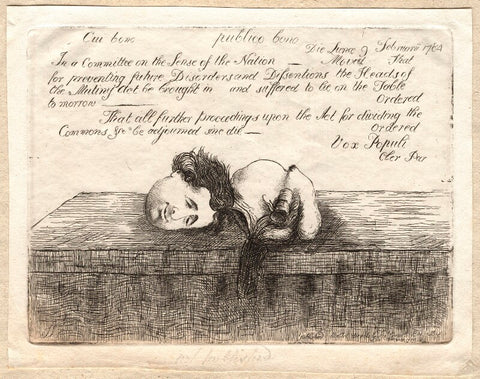 Cui bono publico bono
Die Lunæ 9 Februarii 1784
In a Committee on the Sense of the Nation — Moved That
for preventing future Disorders and Dissentions the Heads of
the Mutiny Act be brought in and suffered to lie on the Table
tomorrow — Ordered
That all further proceedings upon the Act for dividing the
Commons, &c be adjourned sine die — Ordered
Vox Populi
Cler Par